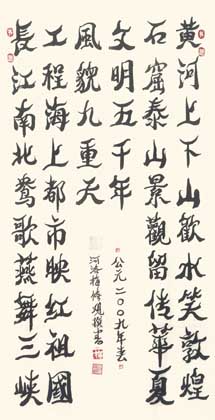 黄河上下山歡水笑敦煌
石窟泰山景觀留傳華夏
文明五千年
長江南北鶯歌燕舞三峽
工程海上都市映紅祖國
風貌九重天
公元二〇〇九年春
河洛梅修撰書